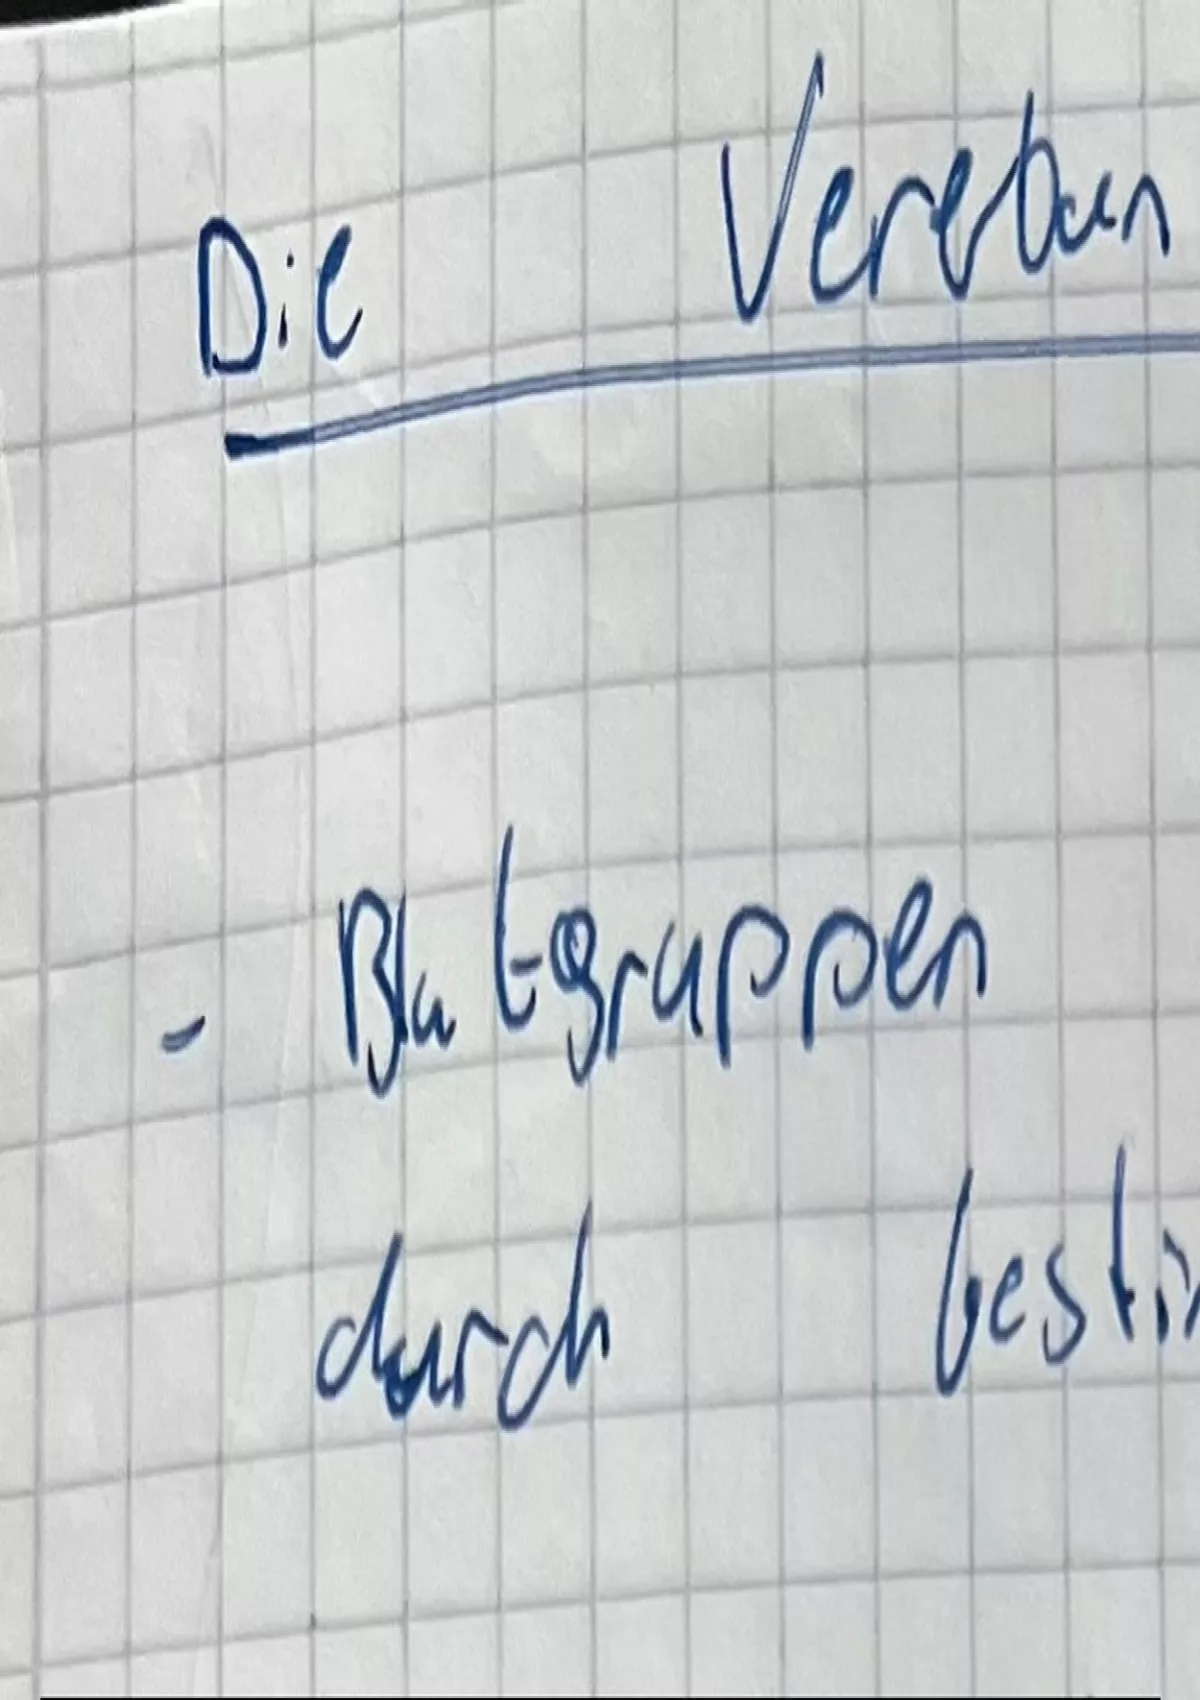 Die Vererbun
- Blutgruppen
durch besti